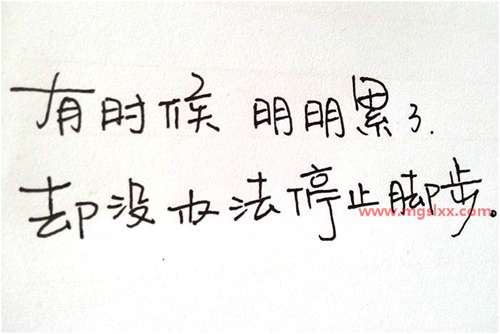 有时候 明明累了.
却没办法停止脚步。
www.mgslxx.com